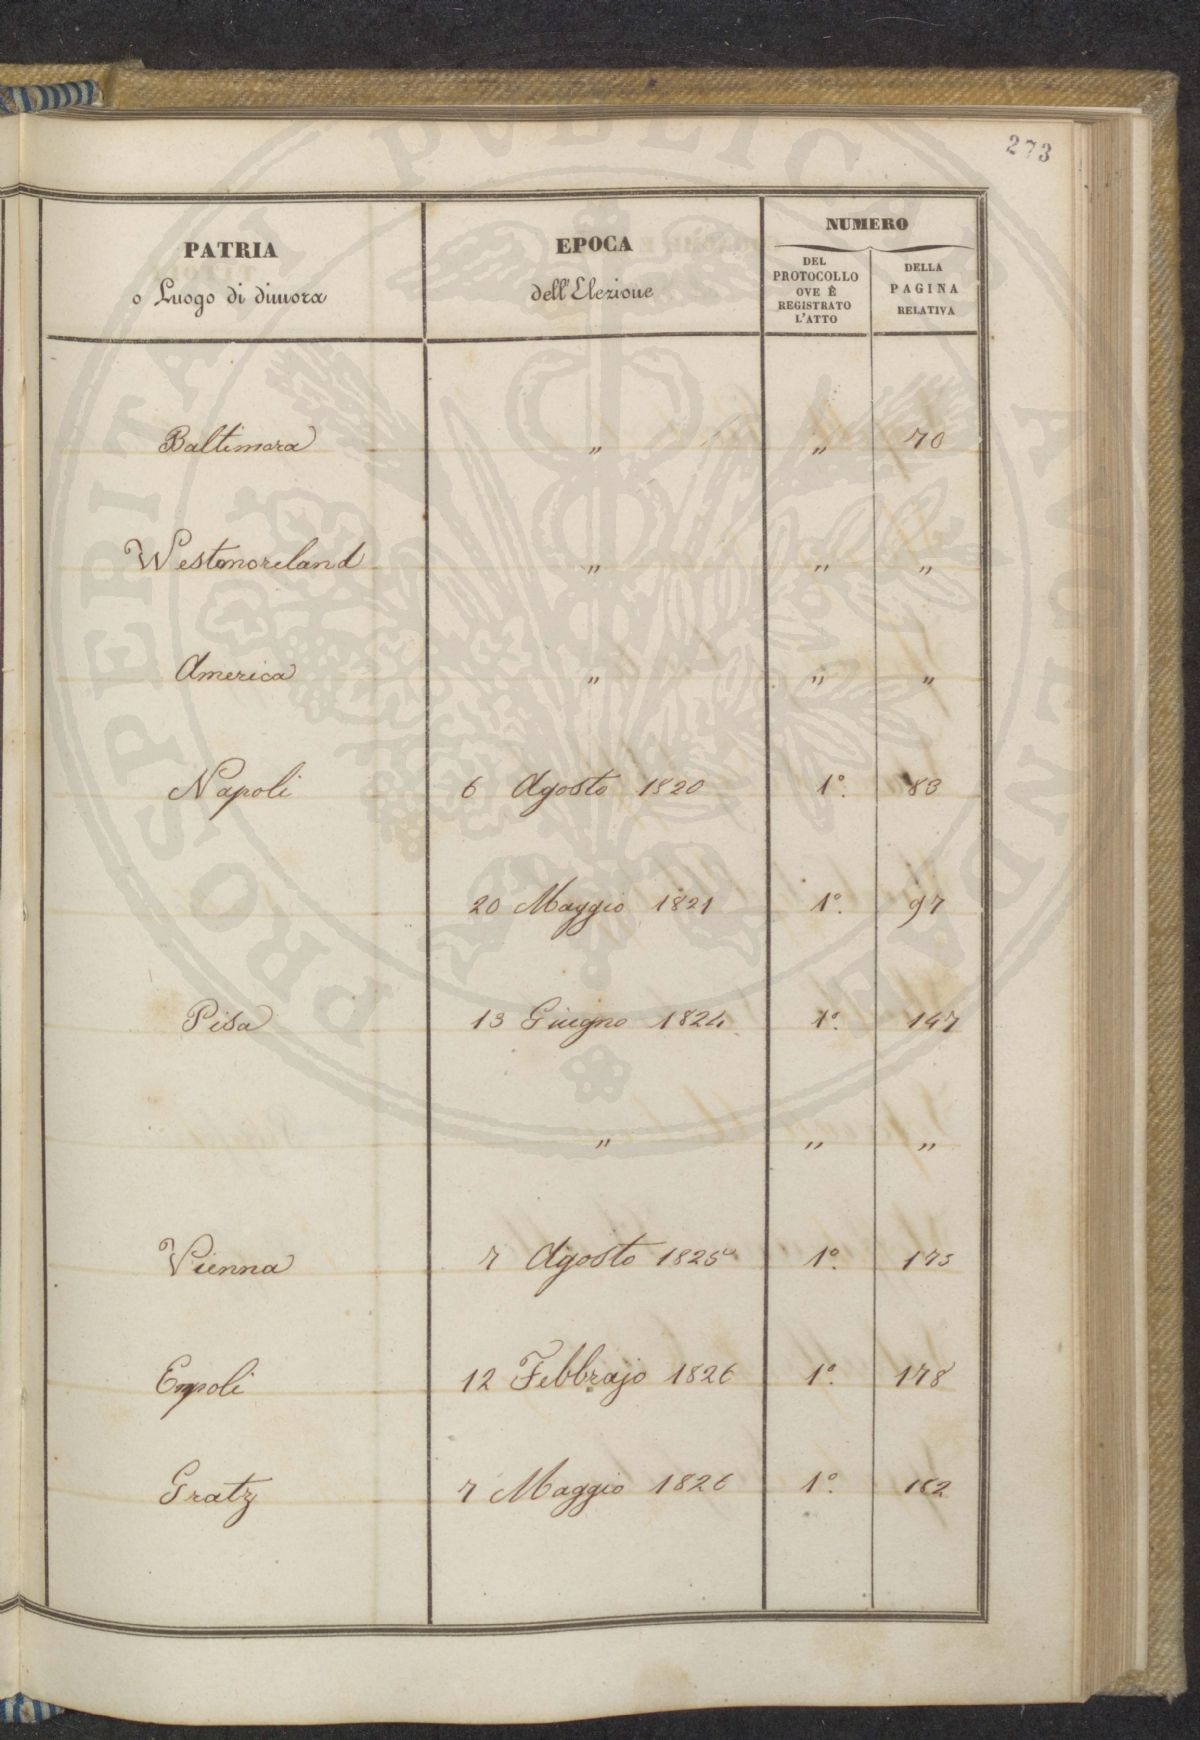 273
PATRIA
o Luogo di dimora
EPOCA
dell'Elezione
NUMERO
DEL
PROTOCOLLO
OVE È
REGISTRATO
L'ATTO
DELLA
PAGINA
RELATIVA
Baltimora " " 70
Westmoreland " " "
America " " "
Napoli 6 Agosto 1820 1°. 83
20 Maggio 1821 1°. 97
Pisa 13 Giugno 1824 1°. 147
" " "
Vienna 7 Agosto 1825 1°. 175
Empoli 12 Febbrajo 1826 1°. 178
Gratz 7 Maggio 1826 1°. 182
PROSPERITATI PUBLICAE AUGENDAE